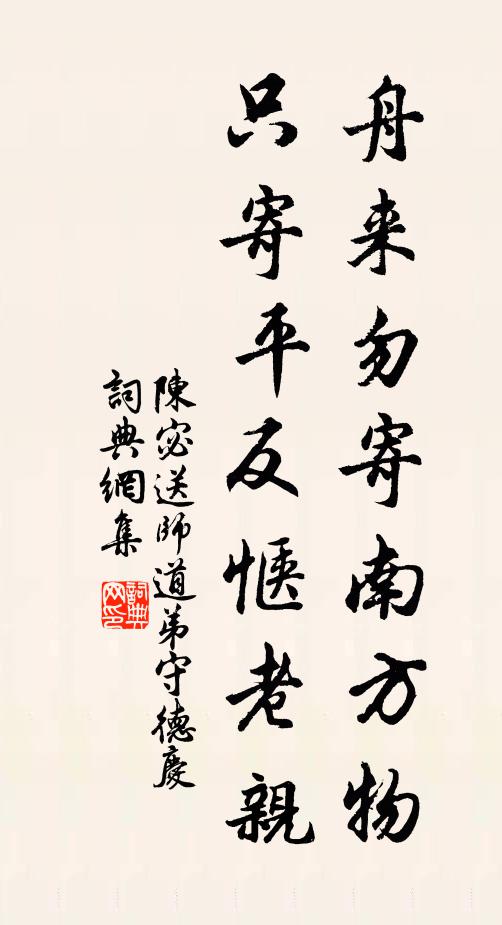 舟来勿寄南方物
只寄平反愜老親
陳宓送師道弟守德慶
詞典網集
詞典
网印